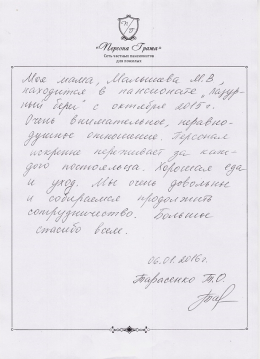 «Первая Грата»
Сеть частных пансионатов
для пожилых
Моя мама, Малышева М.В,
находится в пансионате „Лазур-
ный берег" с октября 2015г.
Очень внимательное, неравно-
душное отношение. Персонал
искренне переживает за каж-
дого постояльца. Хорошая еда
и уход. Мы очень довольны
и собираемся продолжить
сотрудничество. Большое
спасибо всем.
06.01.2016г.
Тарасенко Т.О.